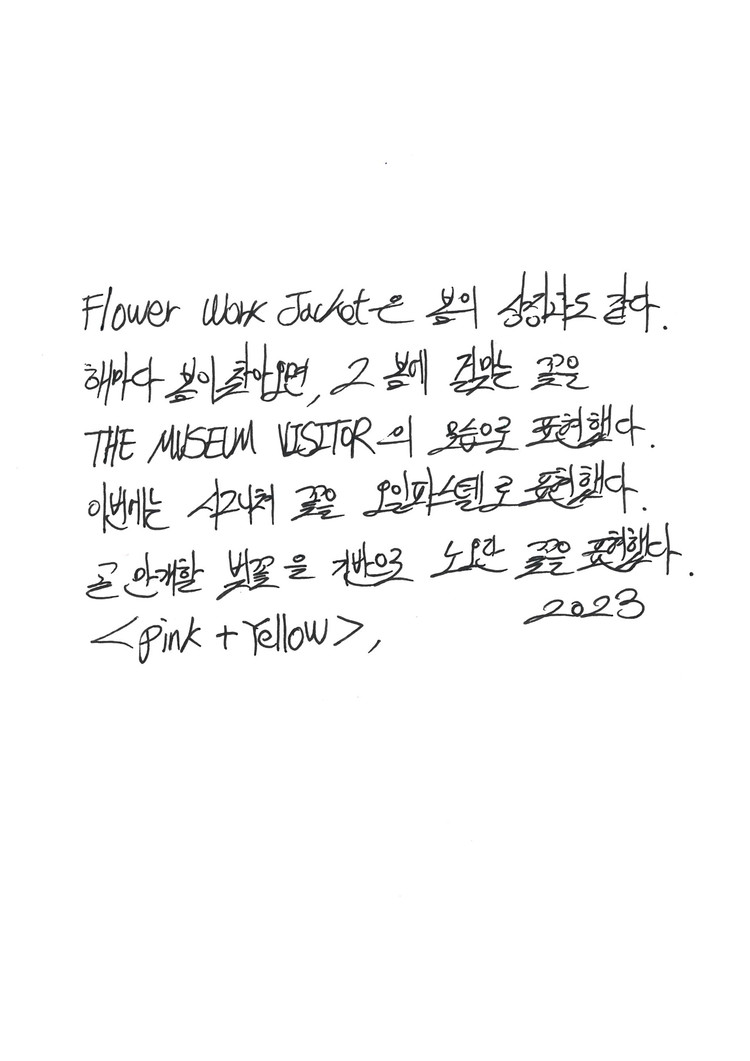 Flower Work Jacket은 봄의 상징과도 같다.
해마다 봄이 찾아오면, 그 봄에 걸맞는 꽃을
THE MUSEUM VISITOR의 모습으로 표현했다.
이번에는 시그니처 꽃을 오일파스텔로 표현했다.
곧 만개할 벚꽃을 기반으로 노오란 꽃을 표현했다.
<pink + Yellow>, 2023